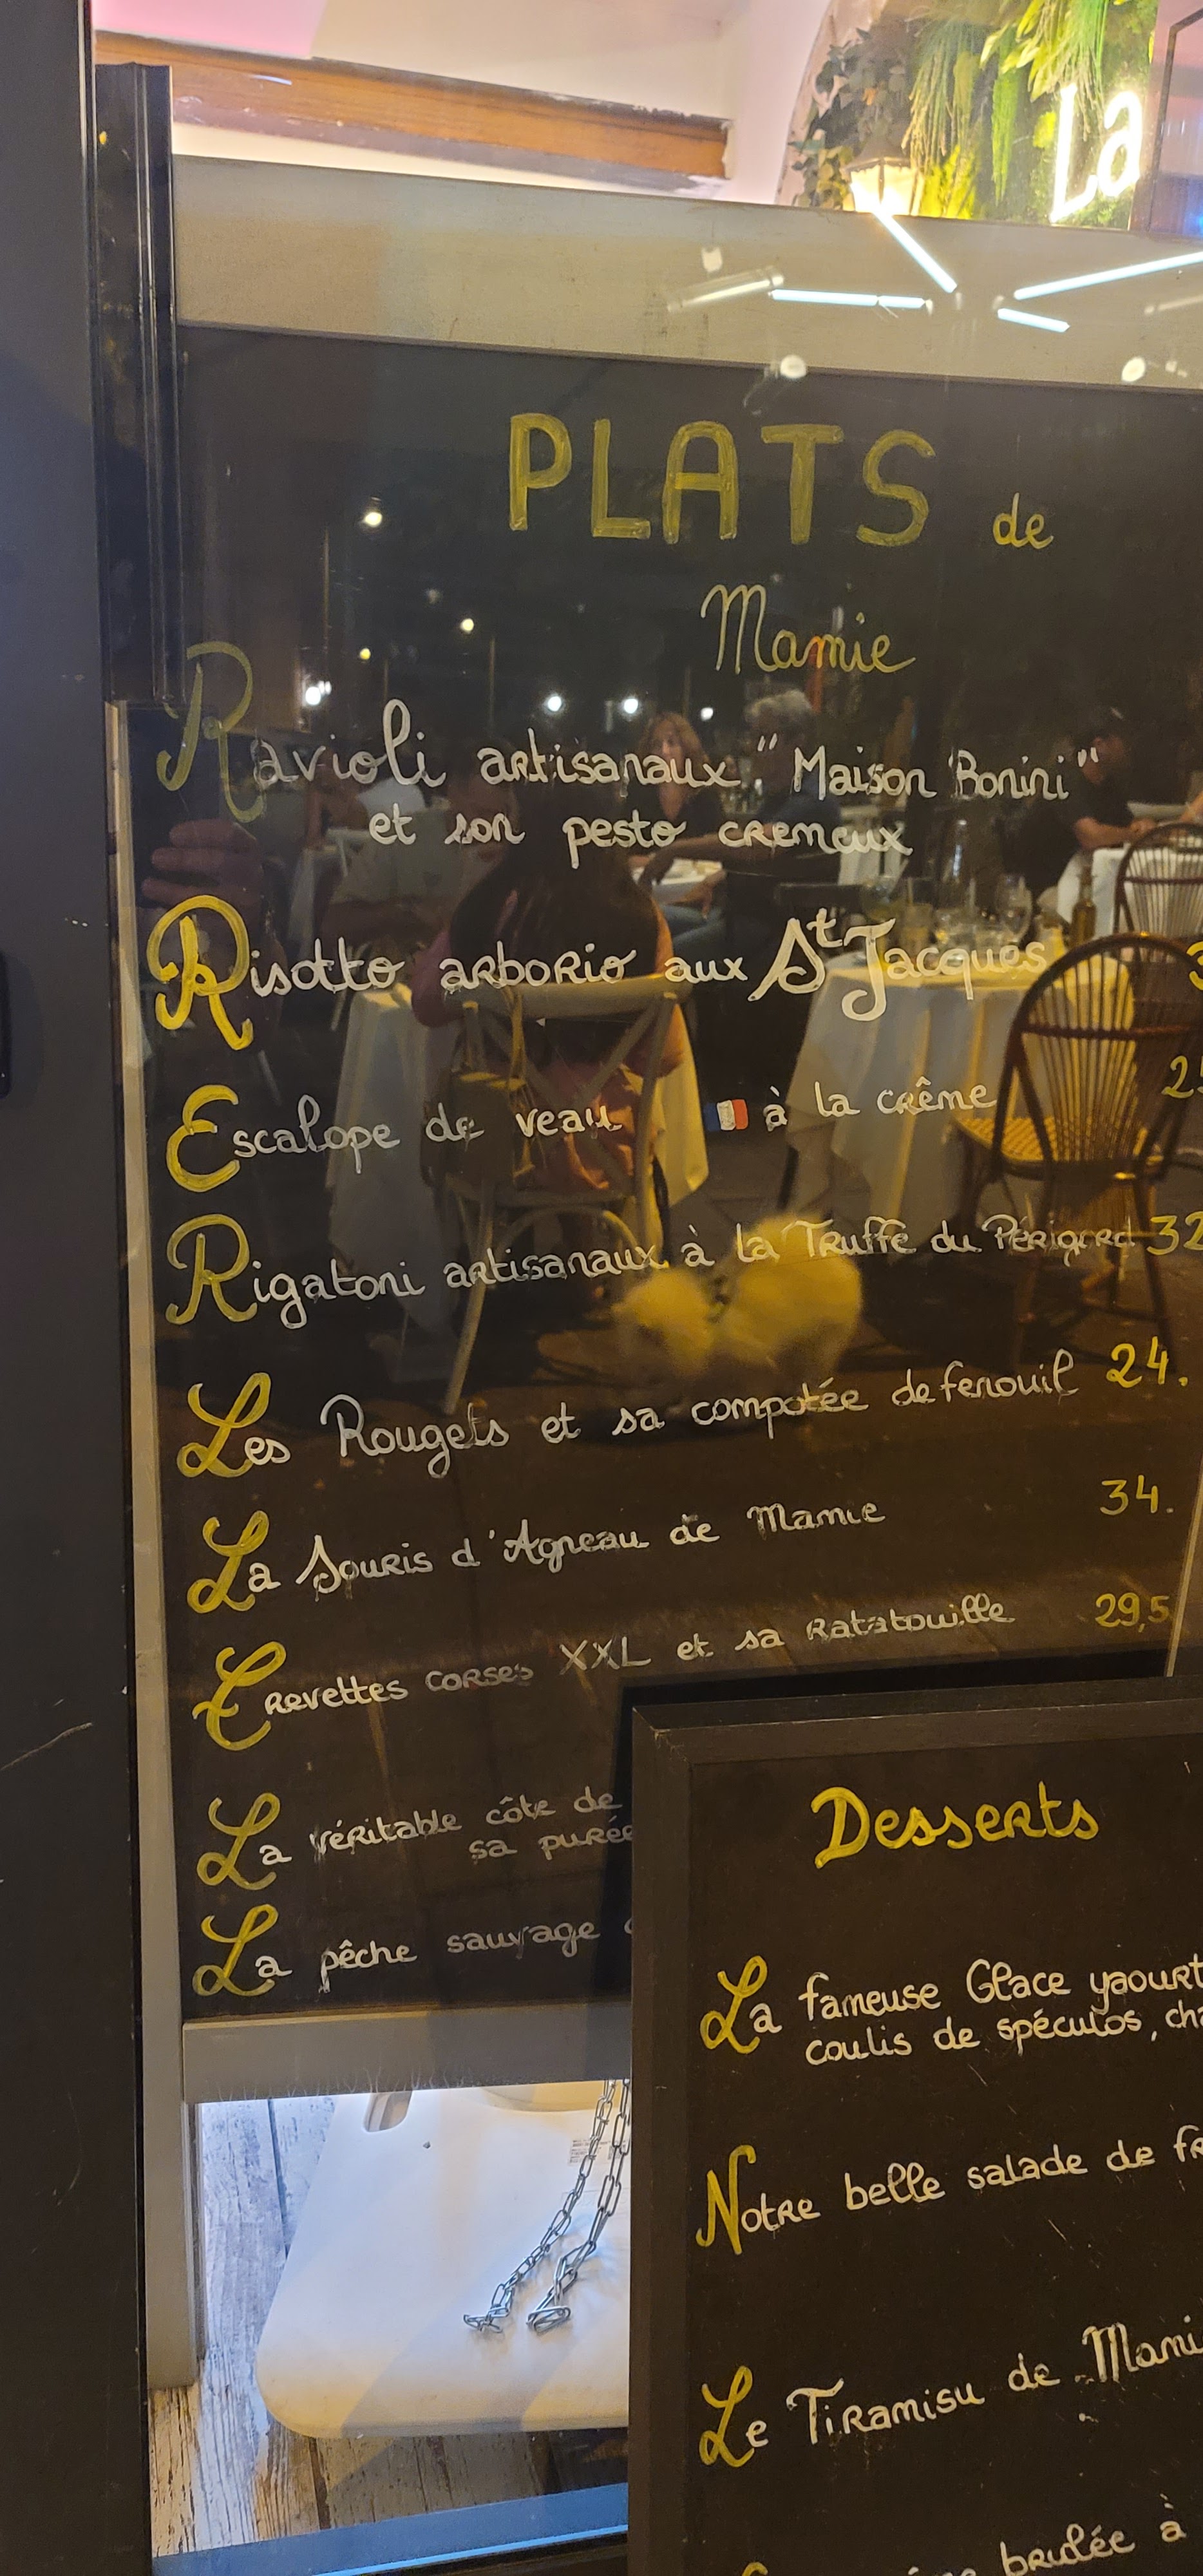 La
PLATS de
Mamie
Ravioli artisanaux "Maison Bonini"
et son pesto cremeux
Risotto arborio aux St Jacques
Escalope de veau à la crême
Rigatoni artisanaux à la Truffe du Périgord 32
Les Rougets et sa compotée de fenouil 24.
La Souris d'Agneau de Mamie 34.
Crevettes corses XXL et sa Ratatouille 29,5
La véritable côte de
sa purée
La pêche sauvage
Desserts
La fameuse Glace yaourt
coulis de spéculos,
Notre belle salade de
Le Tiramisu de
brulée à